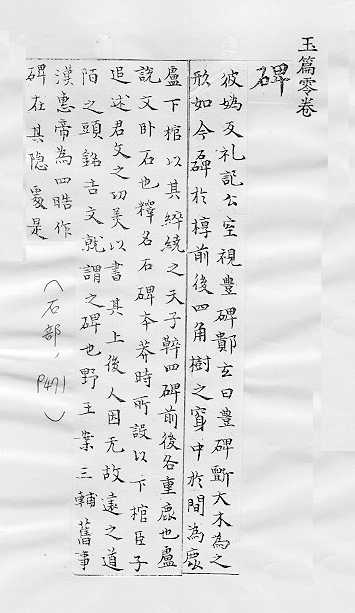 玉篇零卷
碑
彼媯反礼記公室視豊碑鄭玄曰豊碑斲大木為之
形如今碑於椁前後四角樹之穿中於間為鹿
盧下棺以其繂繞之天子鞞四碑前後各重鹿也盧
說文卧石也釋名石碑本莽時所設以下棺臣子
追述君父之功美以書其上後人因无故遠之道
陌之頭銘吉文就謂之碑也野王案三輔舊事
漢惠帝為四晧作
碑在其隱處是
(石部,
P471)